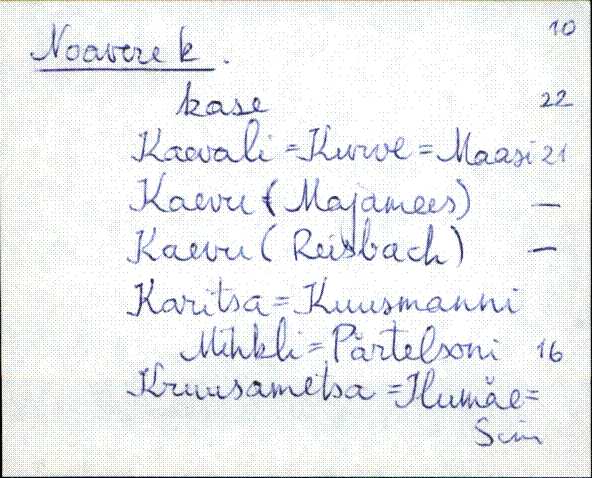 10
Noavere k.
kase 22
Kaevali = Kurve = Maasi 21
Kaevu (Majamees) —
Kaevu (Reisbach) —
Karitsa = Kuusmanni
Mihkli = Pärtelsoni 16
Kruusametsa = Ilumäe =